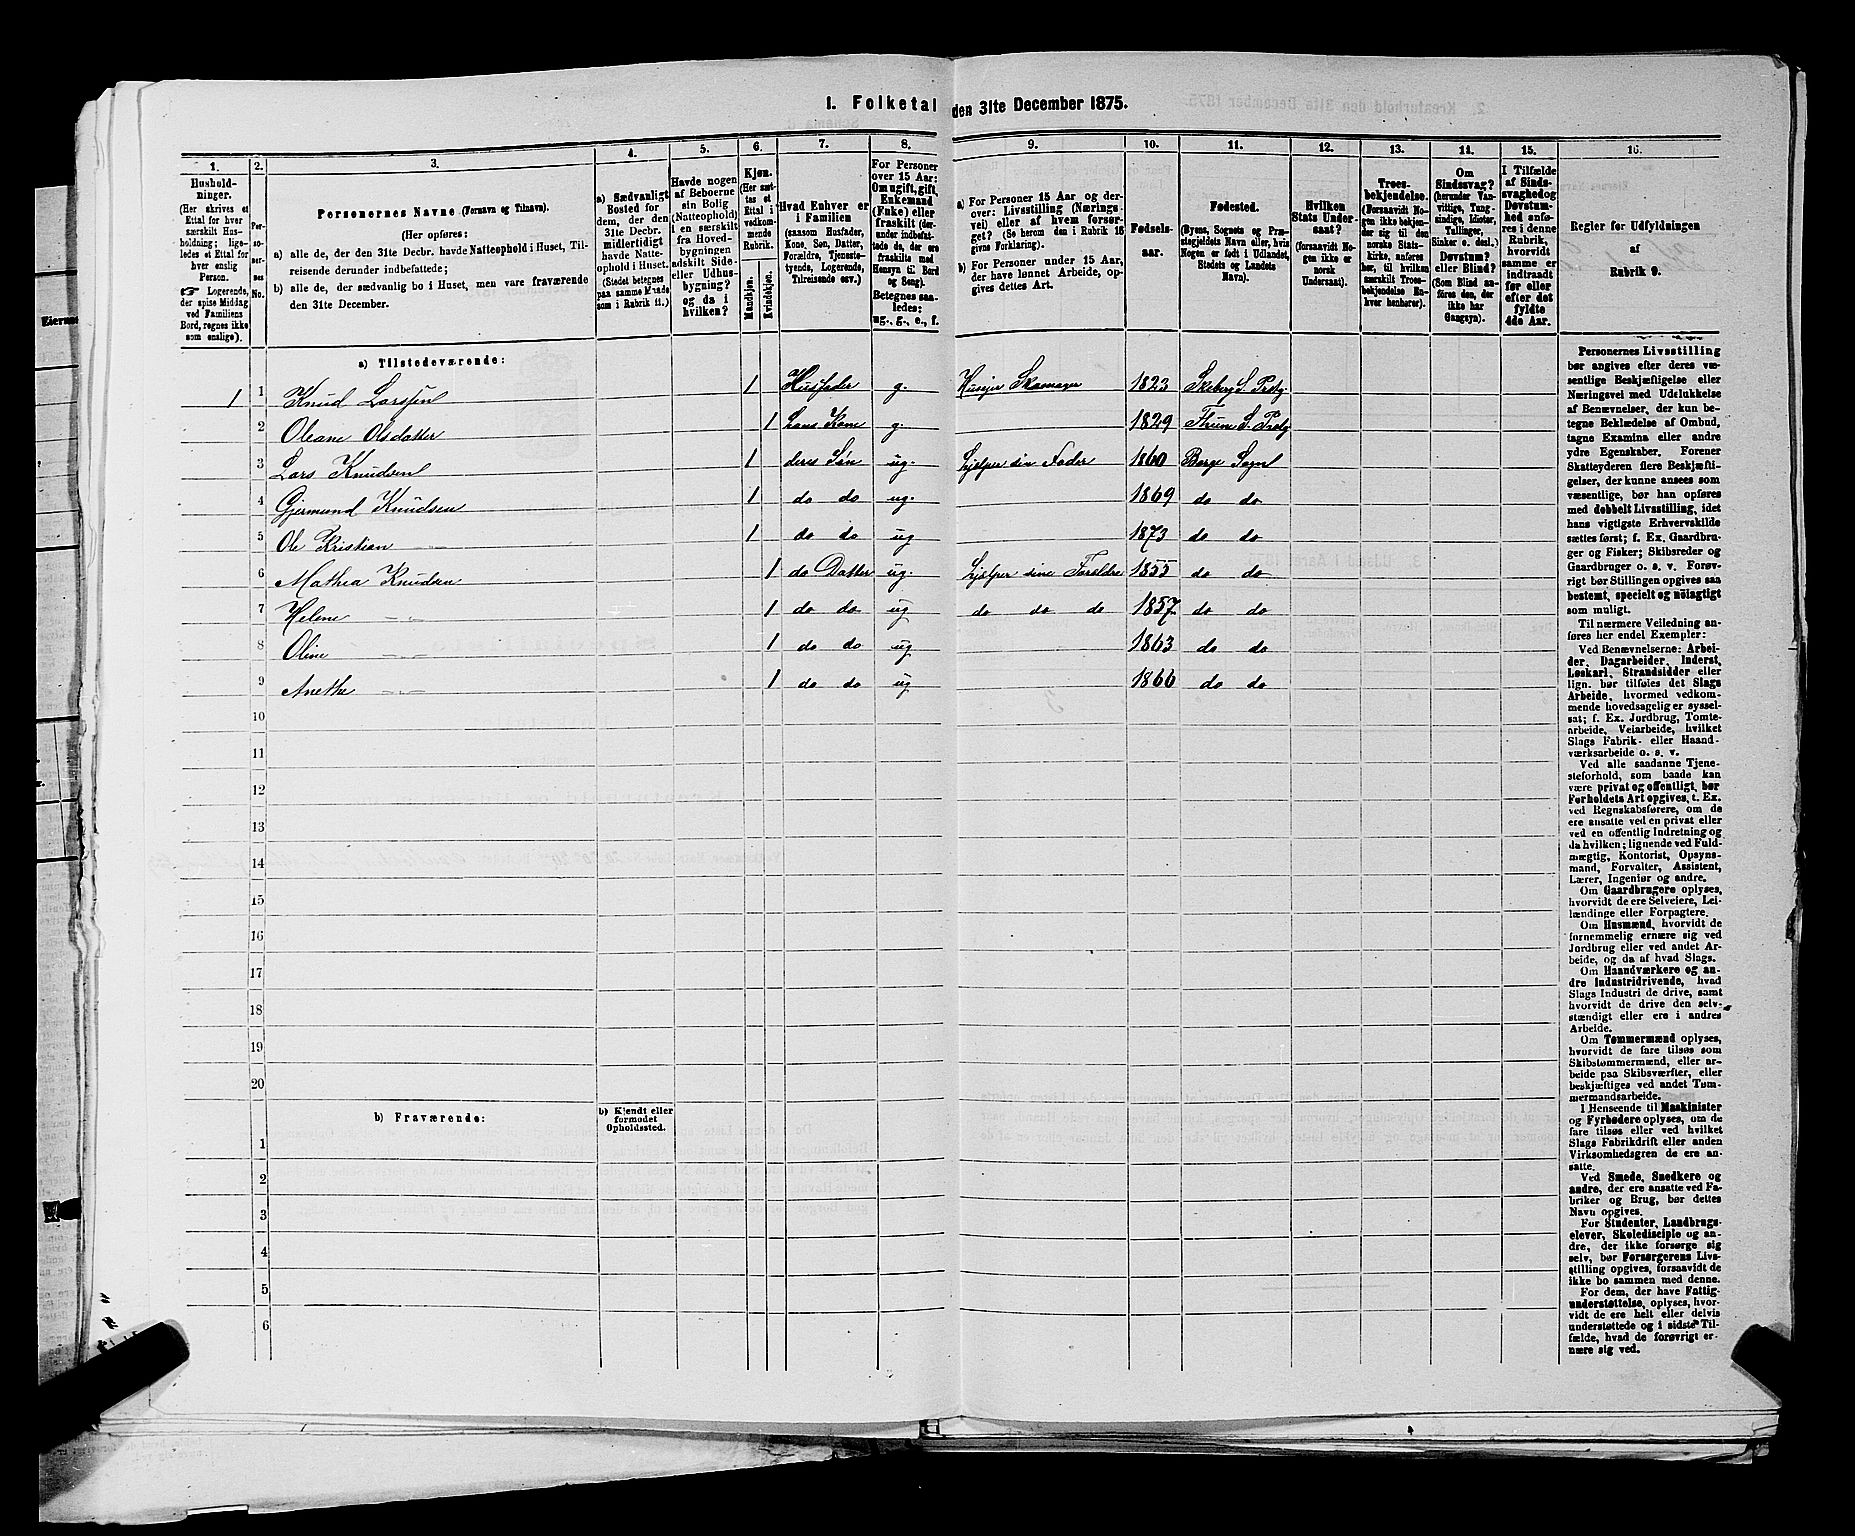 1. Folketal den 31te December 1875.
1. 2. 3. 4. 5. 6. 7. 8. 9. 10. 11. 12. 13. 14. 15. 16.
Hushold-
ninger.
(Her skrives et
Ettal for hver
særskilt Hus-
holdning; lige-
ledes et Ettal for
hver enslig
Person.
☞ Logerende,
der spise Middag
ved Familiens
Bord, regnes ikke
som enslige).
Per-
so-
ner-
nes
No.
Personernes Navne (Fornavn og Tilnavn).
(Her opføres:
a) alle de, der den 31te Decbr. havde Natteophold i Huset, Til-
reisende derunder indbefattede;
b) alle de, der sædvanlig bo i Huset, men vare fraværende
den 31te December.
a) Sædvanligt
Bosted for
dem, der den
31te Decbr.
midlertidigt
havde Natte-
ophold i Huset.
(Stedet betegnes
paa samme Maade
som i Rubrik 11.)
Havde nogen
af Beboerne
sin Bolig
(Natteophold)
i en særskilt
fra Hoved-
bygningen
adskilt Side-
eller Udhus-
bygning?
og da i
hvilken?
Kjøn.
(Her sæt-
tes et
Ettal i
vedkom-
mende
Rubrik.
Mandkjøn.
Kvindekjøn.
Hvad Enhver er
i Familien
(saasom Husfader,
Kone, Søn, Datter,
Forældre, Tjeneste-
tyende, Logerende,
Tilreisende osv.)
For Personer
over 15 Aar:
Om ugift, gift,
Enkemand
(Enke) eller
fraskilt (der-
under indbefat-
tede de, der ere
fraskilte med
Hensyn til Bord
og Seng).
Betegnes saa-
ledes:
ug., g., e., f.
a) For Personer 15 Aar og der-
over: Livsstilling (Nærings-
vei) eller af hvem forsør-
get? (Se herom den i Rubrik 16
givne Forklaring).
b) For Personer under 15 Aar,
der have lønnet Arbeide, op-
gives dettes Art.
Fødsels-
aar.
Fødested.
(Byens, Sognets og Præ-
stegjeldets Navn eller, hvis
Nogen er født i Udlandet,
Stedets og Landets
Navn).
Hvilken
Stats Under-
saat?
(forsaavidt No-
gen ikke er
norsk
Undersaat).
Troes-
bekjendelse.
(Forsaavidt No-
gen ikke bekjen-
der sig til den
norske Stats-
kirke, anføres
her, til hvilken
særskilt Troes-
bekjendelse En-
hver henhører).
Om
Sindssvag?
(herunder Van-
vittige, Tung-
sindige, Idioter,
Tullinger,
Sinker o. desl.)
Døvstum?
eller Blind?
(Som Blind an-
føres den, der
ikke har
Gangsyn).
I Tilfælde
af Sinds-
svaghed og
Døvstum-
hed anfø-
res i denne
Rubrik,
hvorvidt
samme er
indtraadt
før eller
efter det
fyldte
4de Aar.
Regler for Udfyldningen
af
Rubrik 9.
a) Tilstedeværende:
1 1 Knud Larssen 1 Husfader g. Husejer Skomager 1823 Skeberg S. Prstg.
2 Oleane Olsdatter 1 hans Kone g. 1829 Thune S. Prstg
3 Lars Knudsen 1 deres Søn ug. hjælper sin Fader 1860 Borge Sogn
4 Gjermund Knudsen 1 do do ug. 1869 do do
5 Ole Kristian —„— 1 do do ug 1873 do do
6 Mathea Knudsen 1 do Datter ug. hjælper sine Forældre 1855 do do
7 Helene —„— 1 do do ug do do do 1857 do do
8 Oline —„— 1 do do ug 1863 do do
9 Anethe —„— 1 do do ug 1866 do do
10
11
12
13
14
15
16
17
18
19
20
b) Fraværende:
b) Kjendt eller
formodet
Opholdssted.
1
2
3
4
5
6
Personernes Livsstilling
bør angives efter deres væ-
sentlige Beskjæftigelse eller
Næringsvei med Udelukkelse
af Benævnelser, der kun be-
tegne Beklædelse af Ombud,
tagne Examina eller andre
ydre Egenskaber. Forener
Skatteyderen flere Beskjæfti-
gelser, der kunne ansees som
væsentlige, bør han opføres
med dobbelt Livsstilling, idet
hans vigtigste Erhvervskilde
sættes først; f. Ex. Gaardbru-
ger og Fisker; Skibsreder og
Gaardbruger o. s. v. Forøv-
rigt bør Stillingen opgives saa
bestemt, specielt og nöiagtigt
som muligt.
Til nærmere Veiledning an-
føres her endel Exempler:
Ved Benævnelserne: Arbei-
der, Dagarbeider, Inderst,
Løskarl, Strandsidder eller
lign. bør tilføies det Slags
Arbeide, hvormed vedkom-
mende hovedsagelig er syssel-
sat; f. Ex. Jordbrug, Tomte-
arbeide, Veiarbeide, hvilket
Slags Fabrik- eller Haand-
værksarbeide o. s. v.
Ved alle saadanne Tjene-
steforhold, som baade kan
være privat og offentligt, bør
Forholdets Art opgives, t. Ex.
ved Regnskabsførere, om de
ere ansatte ved en privat eller
ved en offentlig Indretning og
da hvilken; lignende ved Fuld-
mægtig, Kontorist, Opsyns-
mand, Forvalter, Assistent,
Lærer, Ingeniør og andre.
Om Gaardbrugere oplyses,
hvorvidt de ere Selveiere, Lei-
lændinge eller Forpagtere.
Om Husmænd, hvorvidt de
fornemmelig ernære sig ved
Jordbrug eller ved andet Ar-
beide, og da af hvad Slags.
Om Haandværkere og an-
dre Industridrivende, hvad
Slags Industri de drive, samt
hvorvidt de drive den selv-
stændigt eller ere i andres
Arbeide.
Om Tømmermænd oplyses,
hvorvidt de fare tilsøs som
Skibstømmermænd, eller ar-
beide paa Skibsværfter, eller
beskjæftiges ved andet Tøm-
mermandsarbeide.
I Henseende til Maskinister
og Fyrbødere oplyses, om de
fare tilsøs eller ved hvilket
Slags Fabrikdrift eller anden
Virksomhedsgren de ere an-
satte.
Ved Smede, Snedkere og
andre, der ere ansatte ved Fa-
briker og Brug, bør dettes
Navn opgives.
For Studenter, Landbrugs-
elever, Skoledisciple og an-
dre, der ikke forsørge sig
selv, bør Forsørgerens Livs-
stilling opgives, forsaavidt de
ikke bo sammen med denne.
For dem, der have Fattig-
understøttelse, oplyses, hvor-
vidt de ere helt eller delvis
understøttede og i sidste Til-
fælde, hvad de forøvrigt er-
nære sig ved.